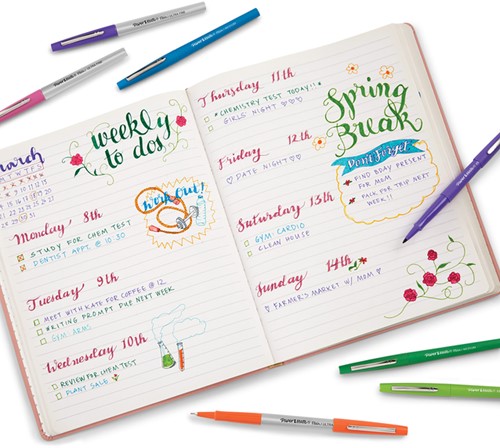 March
weekly
to dos
Work Out!
Monday 8th
STUDY FOR CHEM TEST
DENTIST APPT. @ 10:30
Tuesday 9th
MEET WITH KATE FOR COFFEE @ 12
WRITING PROMPT DUE NEXT WEEK
GYM: ARMS
Wednesday 10th
REVIEW FOR CHEM TEST
PLANT SALE
Thursday 11th
CHEMISTRY TEST TODAY!!
GIRLS NIGHT ♡♡♡
Friday 12th
♡ DATE NIGHT ♡♡
Saturday 13th
GYM: CARDIO
CLEAN HOUSE
Sunday 14th
FARMER'S MARKET W/ MOM ♡
Spring
Break
Don't Forget
FIND BDAY PRESENT
FOR MOM
PACK FOR TRIP NEXT
WEEK!!
Paper Mate
Paper Mate
Paper Mate
Paper Mate
Paper Mate
Paper Mate
Paper Mate